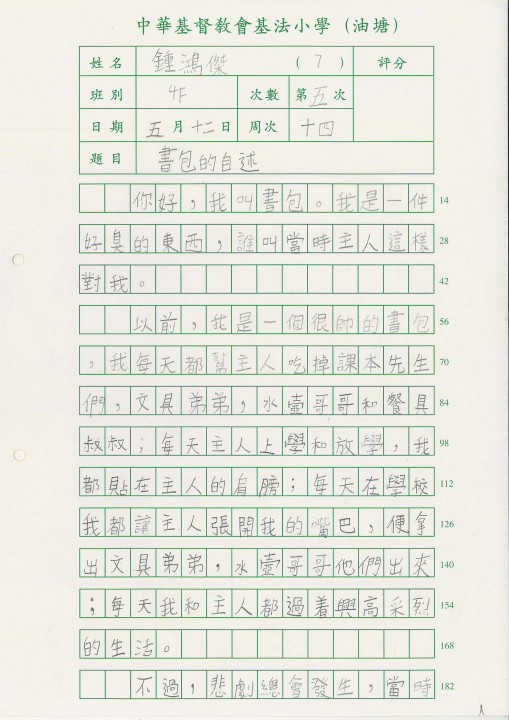 中華基督教會基法小學（油塘）
姓名 鍾鴻傑 (7) 評分
班別 4F 次數 第五次
日期 五月十二日 周次 十四
題目 書包的自述
你好，我叫書包。我是一件 14
好臭的東西，誰叫當時主人這樣 28
對我。 42
以前，我是一個很帥的書包 56
，我每天都幫主人吃掉課本先生 70
們，文具弟弟，水壺哥哥和餐具 84
叔叔；每天主人上學和放學，我 98
都貼在主人的肩膀；每天在學校 112
我都讓主人張開我的嘴巴，便拿 126
出文具弟弟，水壺哥哥他們出來 140
；每天我和主人都過着興高采烈 154
的生活。 168
不過，悲劇總會發生，當時 182